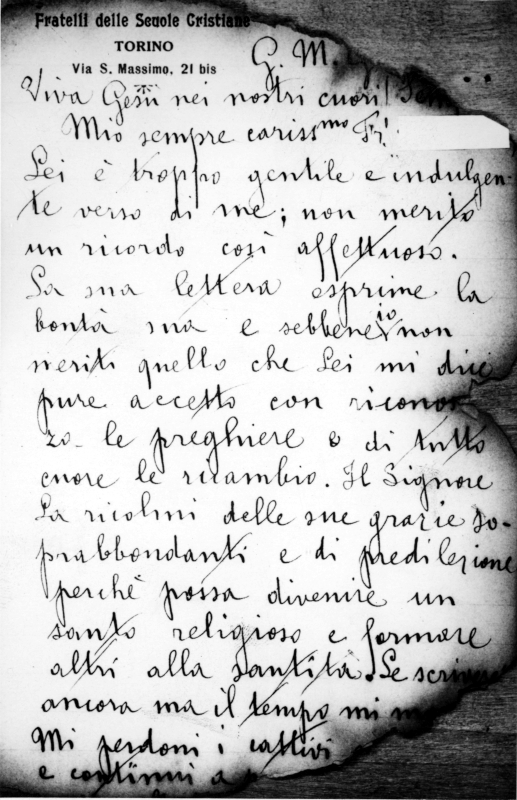 Fratelli delle Scuole Cristiane
TORINO
Via S. Massimo, 21 bis
G. M. G.
Viva Gesù nei nostri cuori!
Mio sempre cariss^mo Fr.
Lei è troppo gentile e indulgen-
te verso di me; non merito
un ricordo così affettuoso.
La sua lettera esprime la
bontà sua e sebbene io non
meriti quello che Lei mi dice
pure accetto con
le preghiere e di tutto
cuore le ricambio. Il Signore
La ricolmi delle sue grazie so-
prabbondanti e di predilezione
perchè possa divenire un
santo religioso e formare
altri alla santità. Le
ancora ma il tempo mi
Mi perdoni i cattivi
e continui a